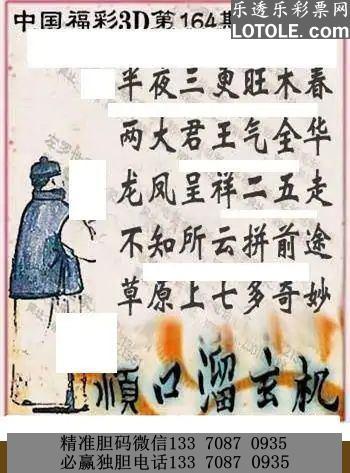 中国福彩3D第164期
乐透乐彩票网
LOTOLE.COM
半夜三更旺木春
两大君王气全华
龙凤呈祥二五走
不知所云拼前途
草原上七多奇妙
顺口溜玄机
精准胆码微信133 7087 0935
必赢独胆电话133 7087 0935